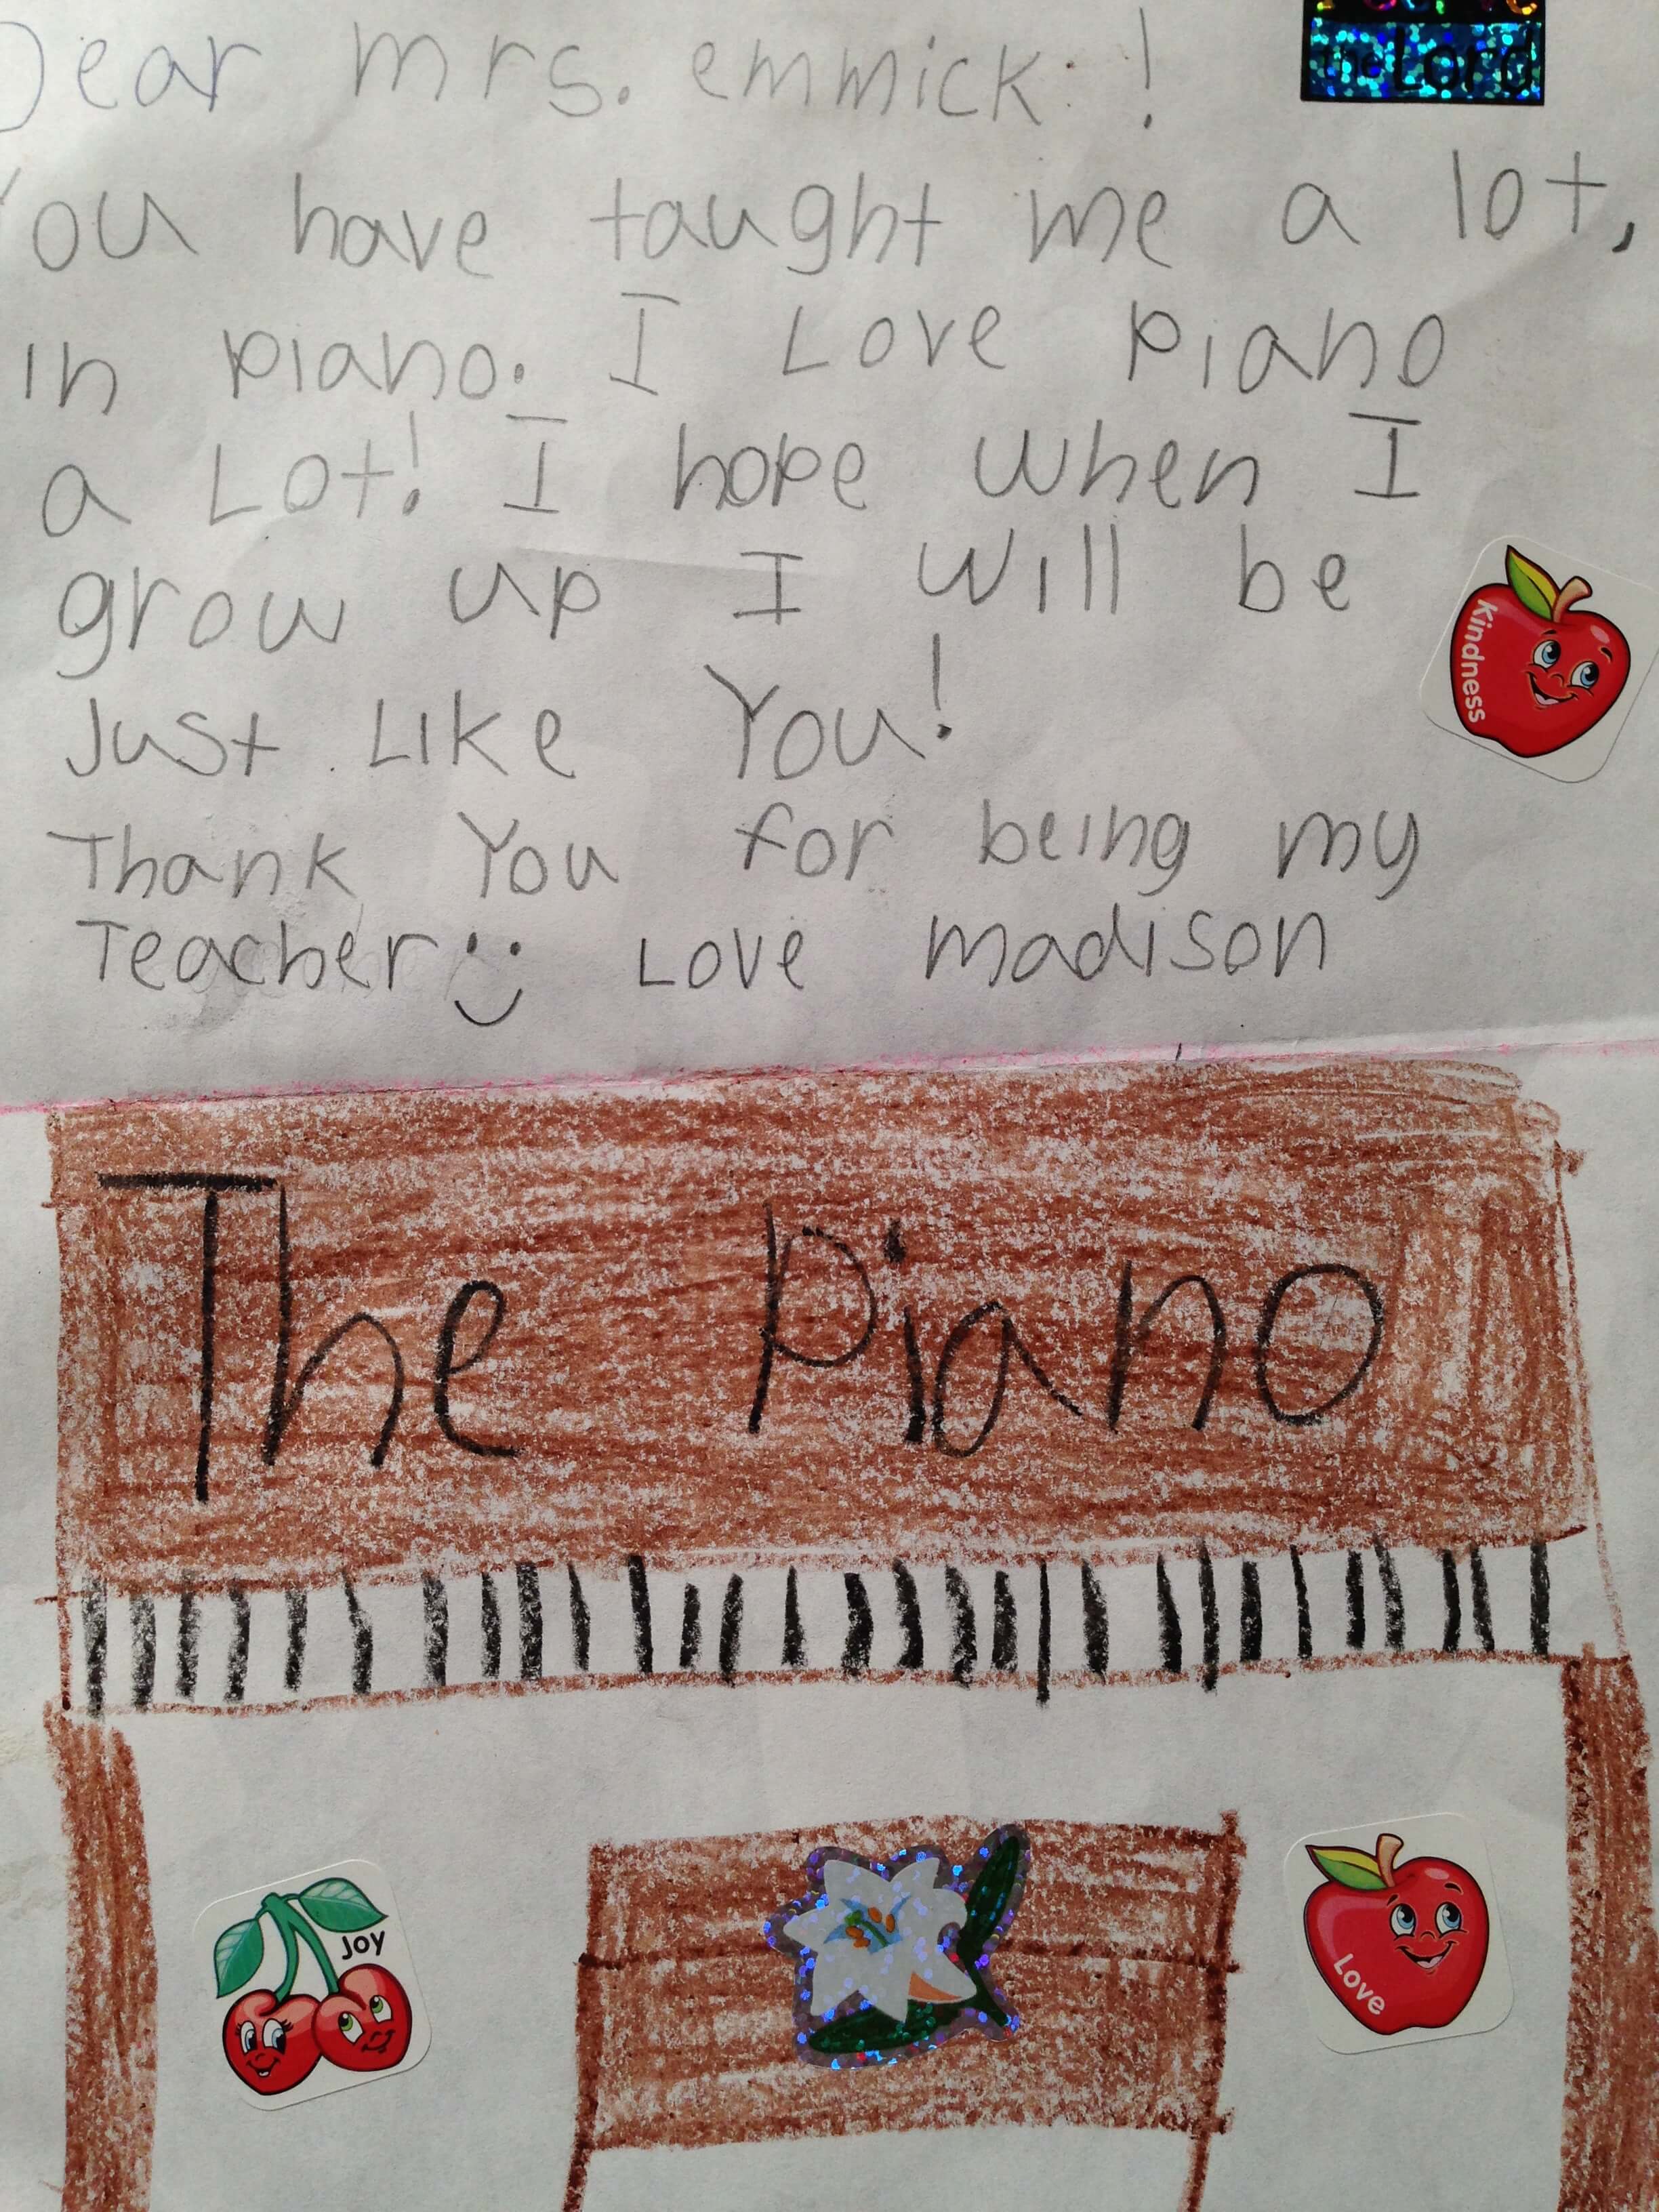 Dear mrs. emmick!
the Lord
You have taught me a lot,
in piano. I Love piano
a Lot! I hope when I
grow up I will be
Kindness
Just Like You!
Thank You for being my
Teacher Love madison
The Piano
JOY
Love